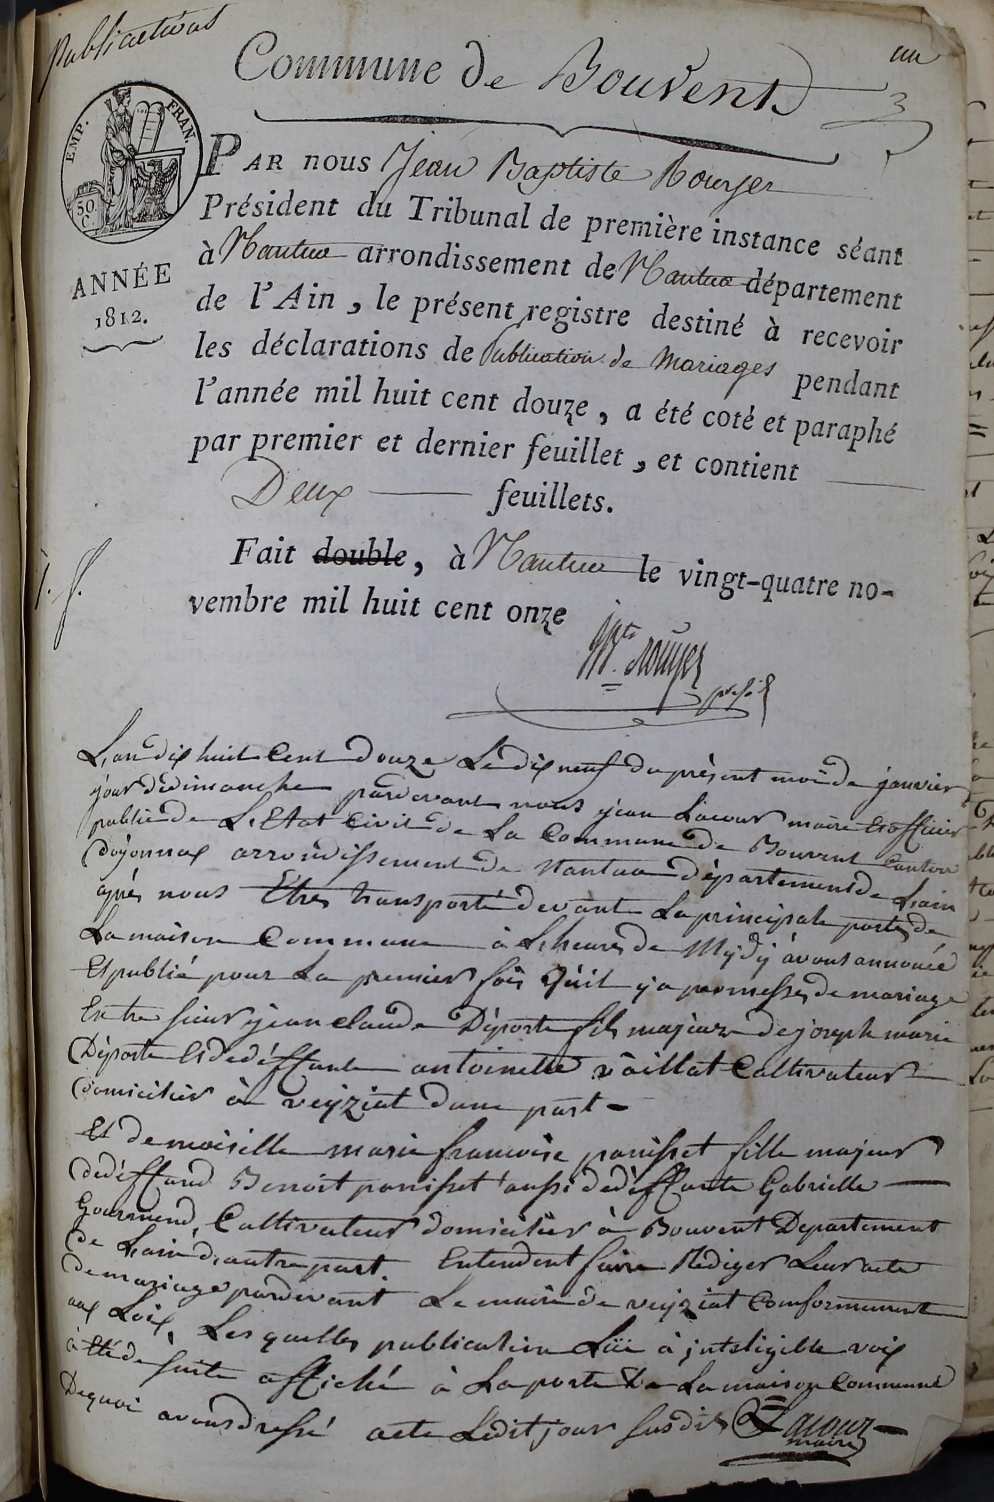 Publications
un
Commune de Bouvent
EMP. FRAN.
50. C.
ANNÉE
1812.
PAR nous Jean Baptiste Rouyer
Président du Tribunal de première instance séant
à Nantua arrondissement de Nantua département
de l'Ain, le présent registre destiné à recevoir
les déclarations de Publication de Mariages pendant
l'année mil huit cent douze, a été coté et paraphé
par premier et dernier feuillet, et contient
Deux feuillets.
Fait double, à Nantua le vingt-quatre no-
vembre mil huit cent onze
1. f.
Jn Bte Rouyer
L'an dix huit Cent Douze Le dix neuf du présent mois de janvier
jour dedimanche pardevant nous jean Lacour maire Et officier
public de L'Etat Civil de La Commune de Bouvent Canton
D'oyonnax arrondissement de Nantua département de L'ain
après nous Etres transporté devant La principale porte de
La maison Commune à L'heure de Mydy avons annoncé
Et publié pour La premier fois qu'il y a promesse de mariage
Entre sieur jean claude Déporte fils majeur de joseph marie
Déporte Et dedéffunte antoinette vaillat Cultivateur
Domicilier à veyziat d'une part
Et demoiselle marie francoise panisset fille majeur
dedéffund Benoit panisset aussi dedéffunte Gabrielle
Gourmend Cultivateur domicilier à Bouvent Departement
De L'ain d'autre part Entendent faire Rédiger Leur acte
de mariage pardevant Le maire de veyziat Conformement
aux Loix, Les quelles publication Lüe à jnteligible voix
à Eté de suite affiché à La porte De La maison Commune
Dequoi avons dressé acte Ledit jour susdit Lacour
maire